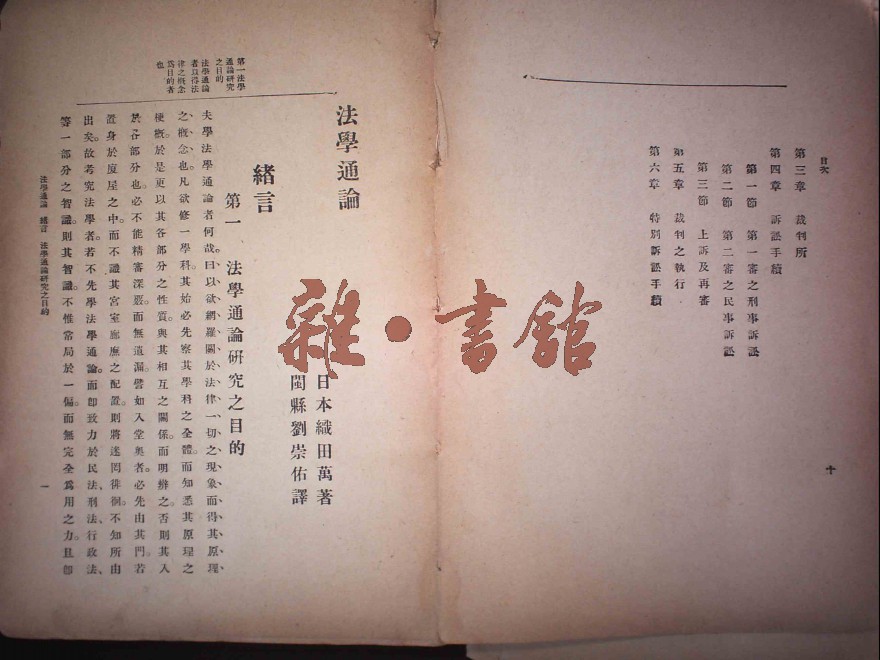 目次
第三章　裁判所
第四章　訴訟手續
第一節　第一審之刑事訴訟
第二節　第二審之民事訴訟
第三節　上訴及再審
第五章　裁判之執行
第六章　特別訴訟手續
十
法學通論
日本織田萬著
閩縣劉崇佑譯
緒言
第一　法學通論研究之目的
夫學法學通論者何哉。曰、以欲網羅關於法律一切之現象、而得其原理
之概念也。凡欲修一學科。其始必先察其學科之全體。而知悉其原理之
梗概。於是更以其各部分之性質。與其相互之關係。而明辨之。否則其入
於各部分也。必不能精審深嚴。而無遺漏。譬如入堂奧者。必先由其門。若
置身於度星之中。而不識其宮室廊廡之配置。則將迷罔徘徊。不知所由
出矣。故考究法學者。若不先學法學通論。而卽致力於民法、刑法、行政法、
等一部分之智識。則其智識。不惟常局於一偏。而無完全爲用之力。且部
第一法學
通論研究
之目的
法學通論
者以得法
律之概念
爲目的者
也
法學通論　緒言　法學通論研究之目的
一
雜・書館